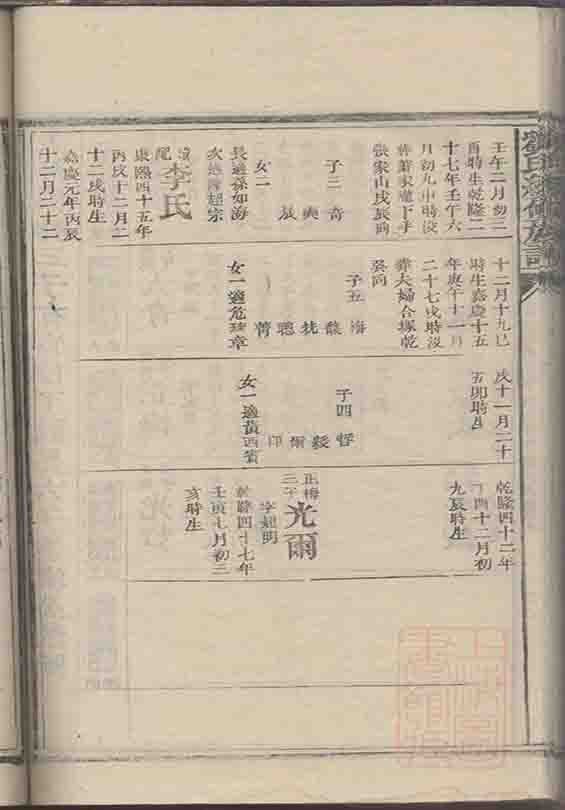 壬午二月初二
酉時生乾隆二
十七年壬午六
月初九申時沒
葬蕭家壠下手
張家山戌辰向
子三
奇
輿
辰
女一
長適徐如海
李氏
康熙四十五年
丙戌十二月二
十二戌時生
嘉慶元年丙辰
十二月二十二
十二月十九巳
時生嘉慶十五
年庚午十一月
二十七戌時沒
葬夫婦合塚乾
子五
海
馥
聰
菁
女一適危瑋章
戌十一月二十
五卯時生
子四
哲
毅
爾
印
女一適黃西賓
乾隆四十二年
丁酉十二月初
九辰時生
正梅
三子
光爾
字超明
乾隆四十七年
壬寅七月初三
亥時生